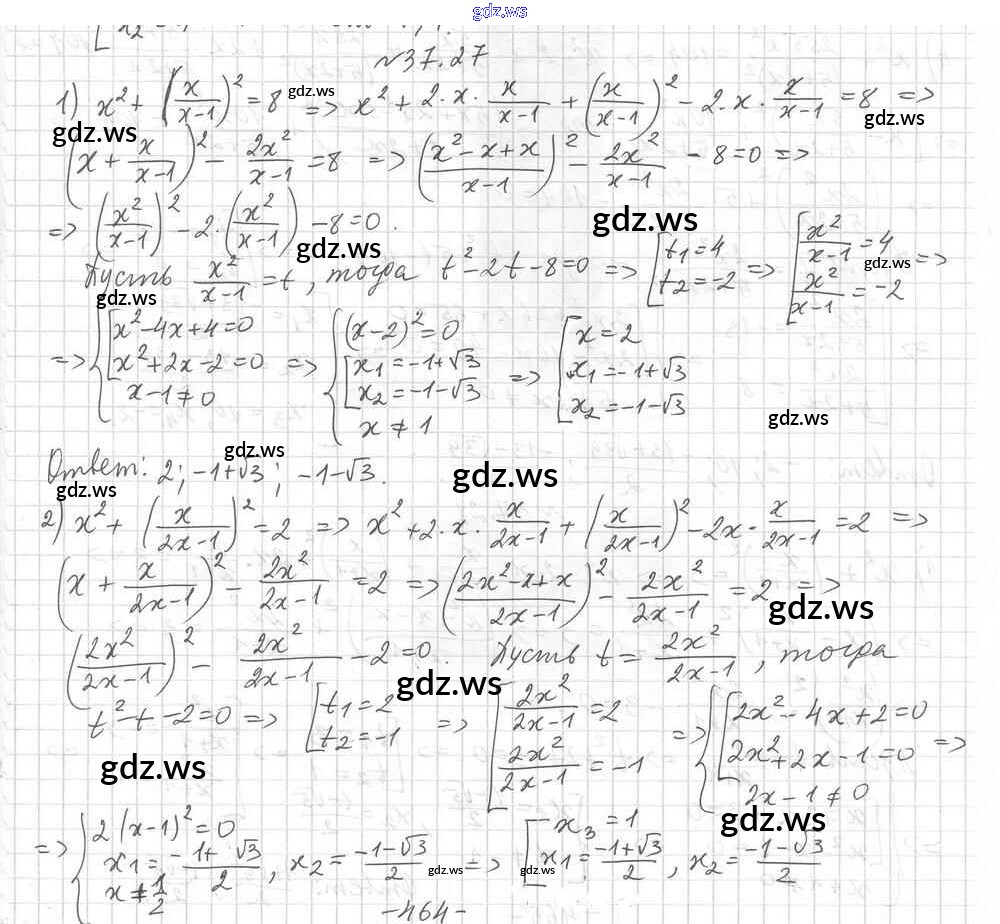 gdz.ws
№37.27
1) x² + (x/(x-1))² = 8 => x² + 2·x·x/(x-1) + (x/(x-1))² - 2·x·x/(x-1) = 8 =>
gdz.ws gdz.ws gdz.ws
(x + x/(x-1))² - 2x²/(x-1) = 8 => ((x²-x+x)/(x-1))² - 2x²/(x-1) - 8 = 0 =>
=> (x²/(x-1))² - 2·(x²/(x-1)) - 8 = 0.
gdz.ws gdz.ws
Пусть x²/(x-1) = t, тогда t² - 2t - 8 = 0 => [t₁ = 4 t₂ = -2 => [x²/(x-1) = 4 x²/(x-1) = -2 =>
gdz.ws gdz.ws
=> {[x² - 4x + 4 = 0 x² + 2x - 2 = 0 x - 1 ≠ 0 => {(x-2)² = 0 [x₁ = -1+√3 x₂ = -1-√3 x ≠ 1 => [x = 2 x₁ = -1+√3 x₂ = -1-√3
gdz.ws
Ответ: 2; -1+√3; -1-√3.
gdz.ws gdz.ws gdz.ws
2) x² + (x/(2x-1))² = 2 => x² + 2·x·x/(2x-1) + (x/(2x-1))² - 2x·x/(2x-1) = 2 =>
(x + x/(2x-1))² - 2x²/(2x-1) = 2 => ((2x²-x+x)/(2x-1))² - 2x²/(2x-1) = 2 =>
gdz.ws
(2x²/(2x-1))² - 2x²/(2x-1) - 2 = 0. Пусть t = 2x²/(2x-1), тогда
gdz.ws
t² - t - 2 = 0 => [t₁ = 2 t₂ = -1 => [2x²/(2x-1) = 2 2x²/(2x-1) = -1 => {[2x² - 4x + 2 = 0 2x² + 2x - 1 = 0 2x - 1 ≠ 0 =>
gdz.ws gdz.ws
=> {2(x-1)² = 0 x₁ = (-1+√3)/2, x₂ = (-1-√3)/2 x ≠ 1/2 => [x₃ = 1 x₁ = (-1+√3)/2, x₂ = (-1-√3)/2
gdz.ws gdz.ws
-464-